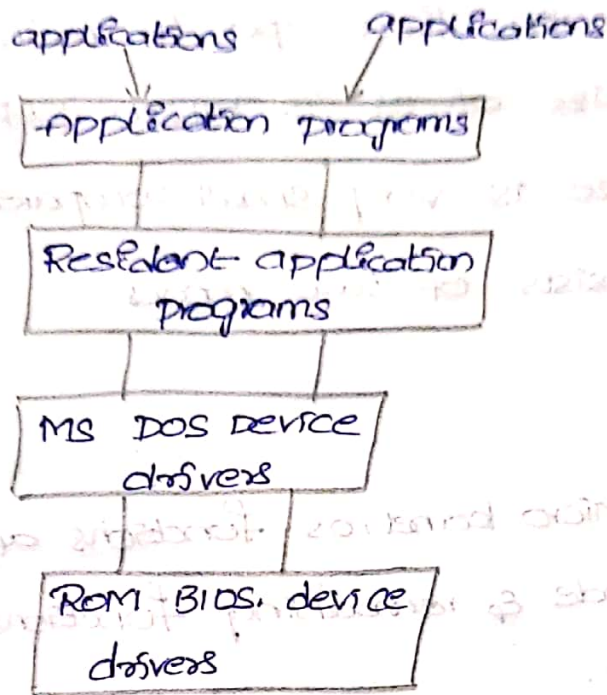 applications applications
Application programs
Resident application
programs
MS DOS Device
drivers
ROM BIOS. device
drivers